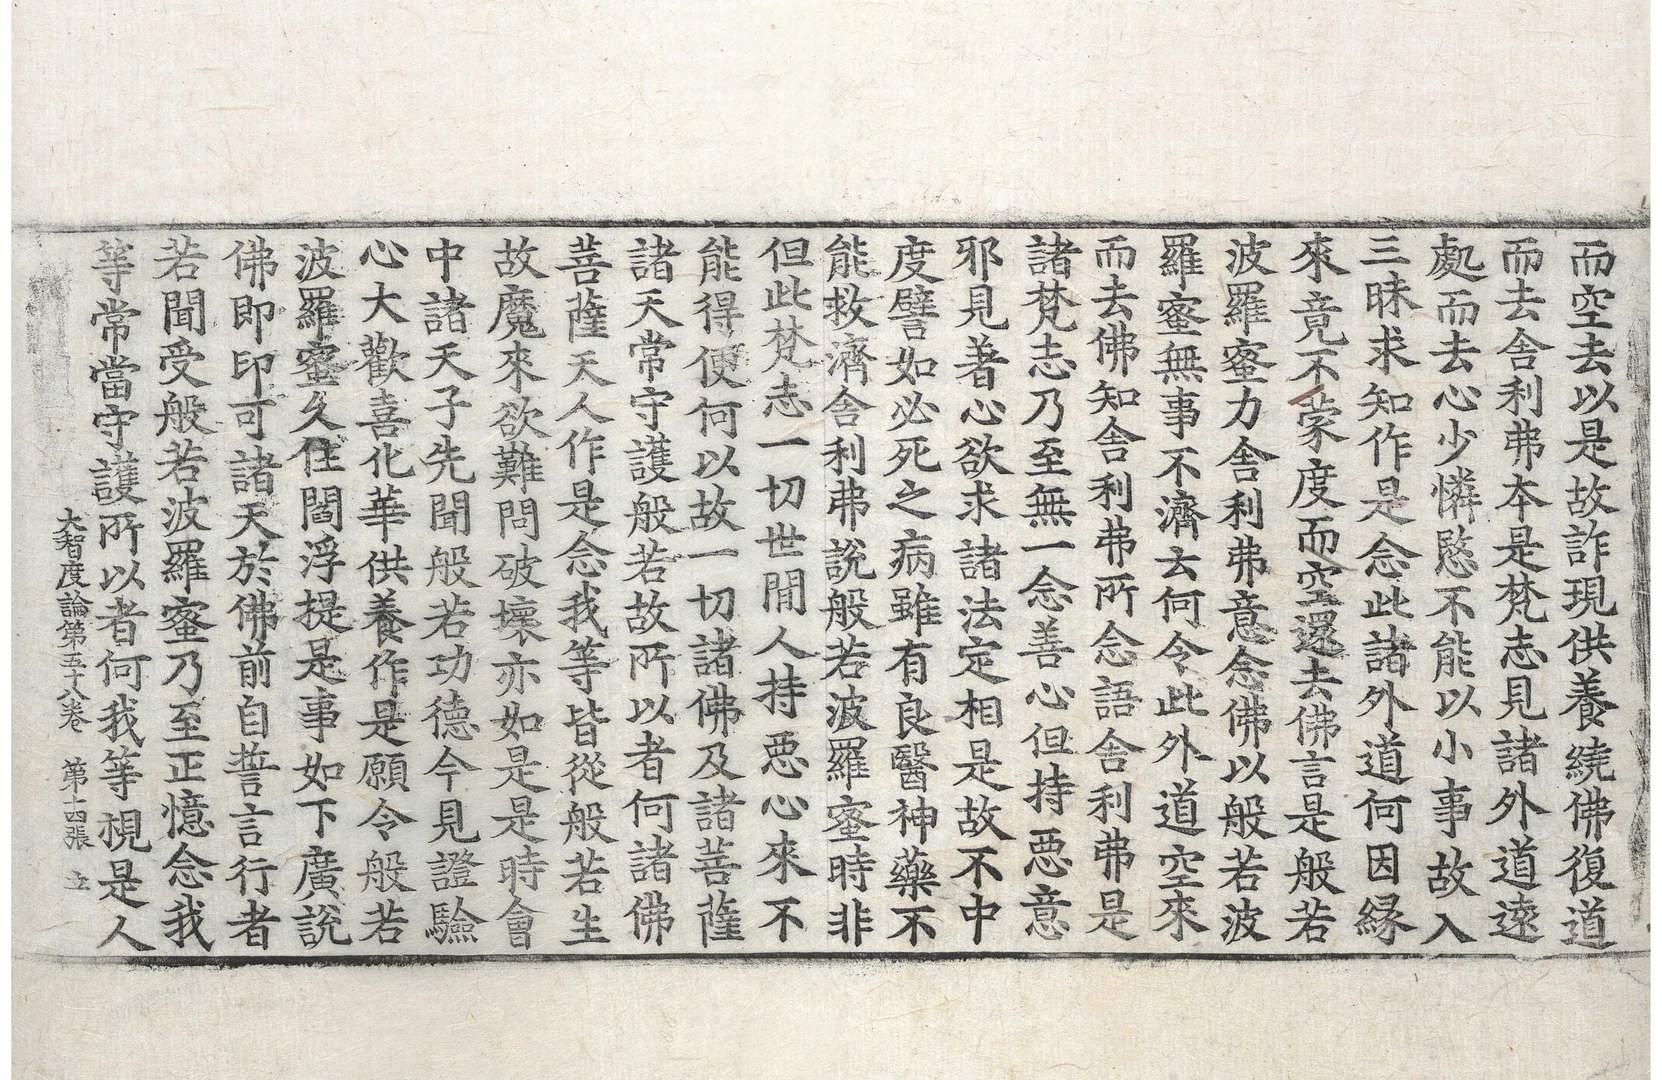 而空去以是故詐現供養繞佛復道
而去舍利弗本是梵志見諸外道遠
處而去心少憐愍不能以小事故入
三昧求知作是念此諸外道何因緣
來竟不蒙度而空還去佛言是般若
波羅蜜力舍利弗意念佛以般若波
羅蜜無事不濟云何令此外道空來
而去佛知舍利弗所念語舍利弗是
諸梵志乃至無一念善心但持惡意
邪見著心欲求諸法定相是故不中
度譬如必死之病雖有良醫神藥不
能救濟舍利弗說般若波羅蜜時非
但此梵志一切世間人持惡心來不
能得便何以故一切諸佛及諸菩薩
諸天常守護般若故所以者何諸佛
菩薩天人作是念我等皆從般若生
故魔來欲難問破壞亦如是是時會
中諸天子先聞般若功德今見證驗
心大歡喜化華供養作是願令般若
波羅蜜久住閻浮提是事如下廣說
佛即印可諸天於佛前自誓言行者
若聞受般若波羅蜜乃至正憶念我
等常當守護所以者何我等視是人
大智度論第五十八卷 第十四張 立